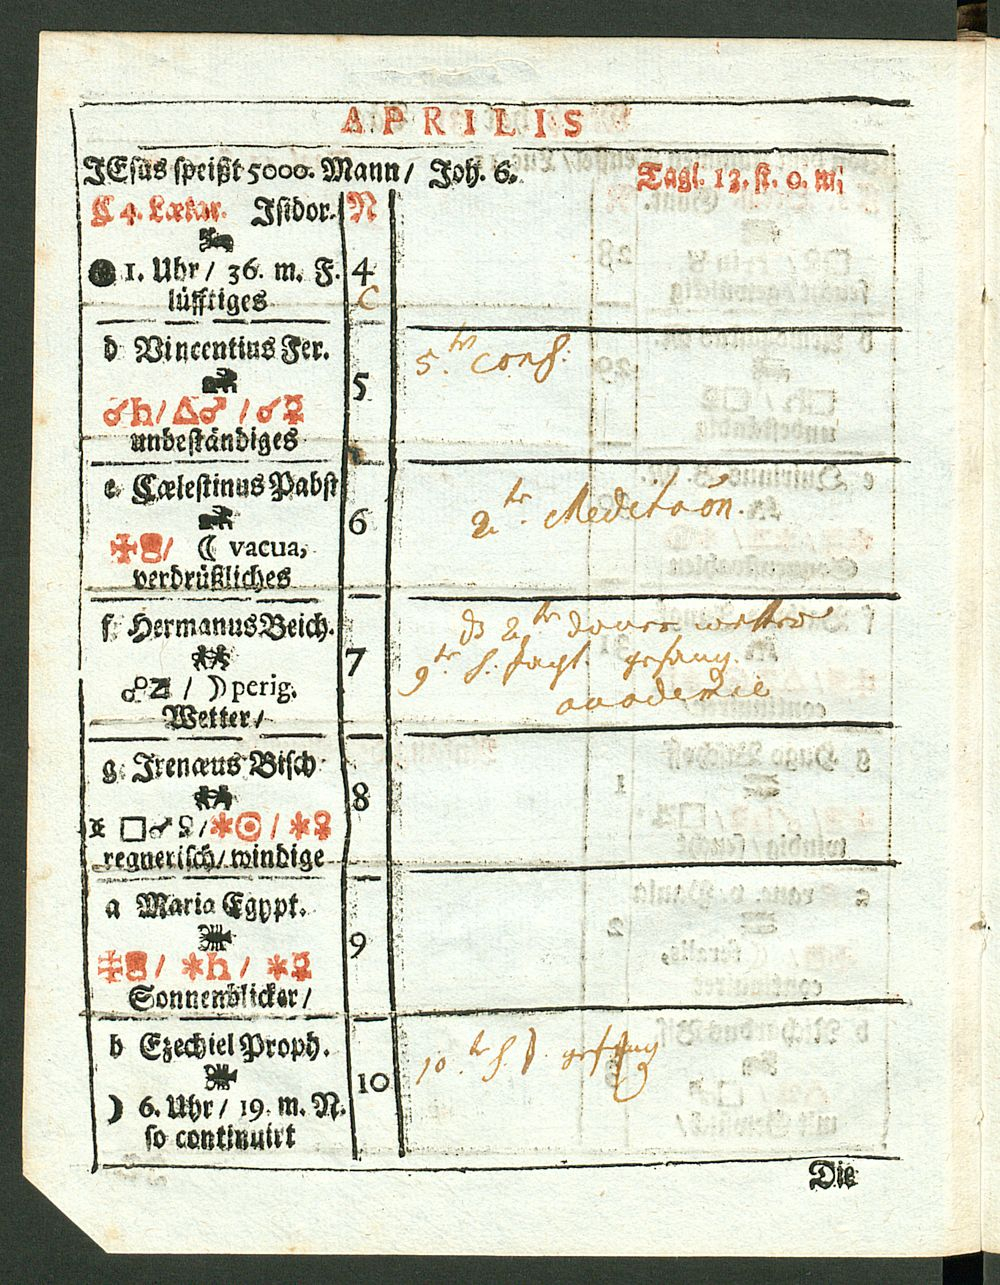 APRILIS
JEsus speißt 5000. Mann / Joh. 6.
Tagl. 13. st. 0. m;
C 4. Lætar. Isidor. N
1. Uhr / 36. m. F. 4
lüfftiges C
d Vincentius Fer.
5
☌♄/△♂/☌☿
unbeständiges
5. tr conf:
e Cælestinus Pabst
6
/ ☾ vacua,
verdrüßliches
2. tr. Meditaõn.
f Hermanus Beich.
7
☍♃ / ☽ perig.
Wetter /
2 tr
9 tr S. gesang.
academie
g Irenæus Bisch.
8
□♂☿/✶☉/✶♀
regnerisch / windige
a Maria Egypt.
9
/ ✶♄/ ✶☿
Sonnenblicker /
b Ezechiel Proph.
10
☽ 6. Uhr / 19. m. N.
so continuirt
10. tr S. gesang
Die